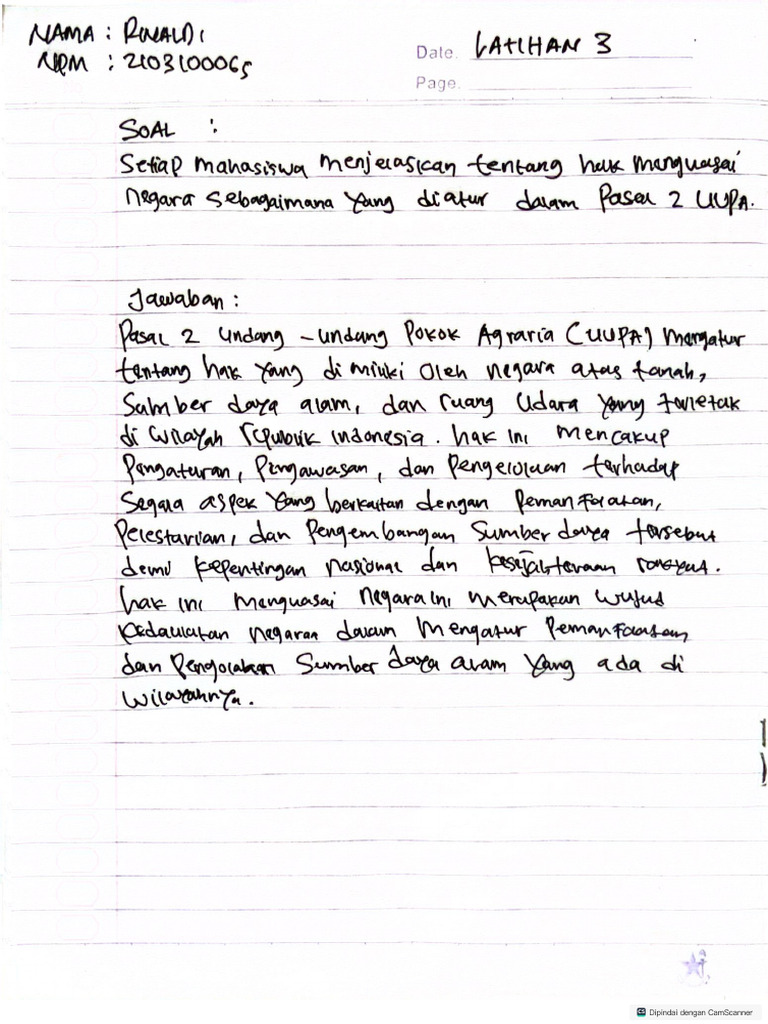 NAMA : RINALDI
NPM : 2103100065
Date. LATIHAN 3
Page.
SOAL :
Setiap mahasiswa menjelaskan tentang hak menguasai
negara sebagaimana yang diatur dalam Pasal 2 UUPA.
Jawaban :
Pasal 2 Undang - undang Pokok Agraria (UUPA) mengatur
tentang hak yang di miliki oleh negara atas tanah,
Sumber daya alam, dan ruang Udara yang terletak
di wilayah republik indonesia. hak ini mencakup
Pengaturan, Pengawasan, dan Pengelolaan terhadap
Segala aspek yang berkaitan dengan pemanfaatan,
Pelestarian, dan Pengembangan Sumber daya tersebut
demi kepentingan nasional dan kesejahteraan rakyat.
hak ini menguasai negara ini merupakan wujud
kedaulatan negaraa dalam mengatur Pemanfaatan,
dan Pengolahan Sumber daya alam yang ada di
wilayahnya.
Dipindai dengan CamScanner